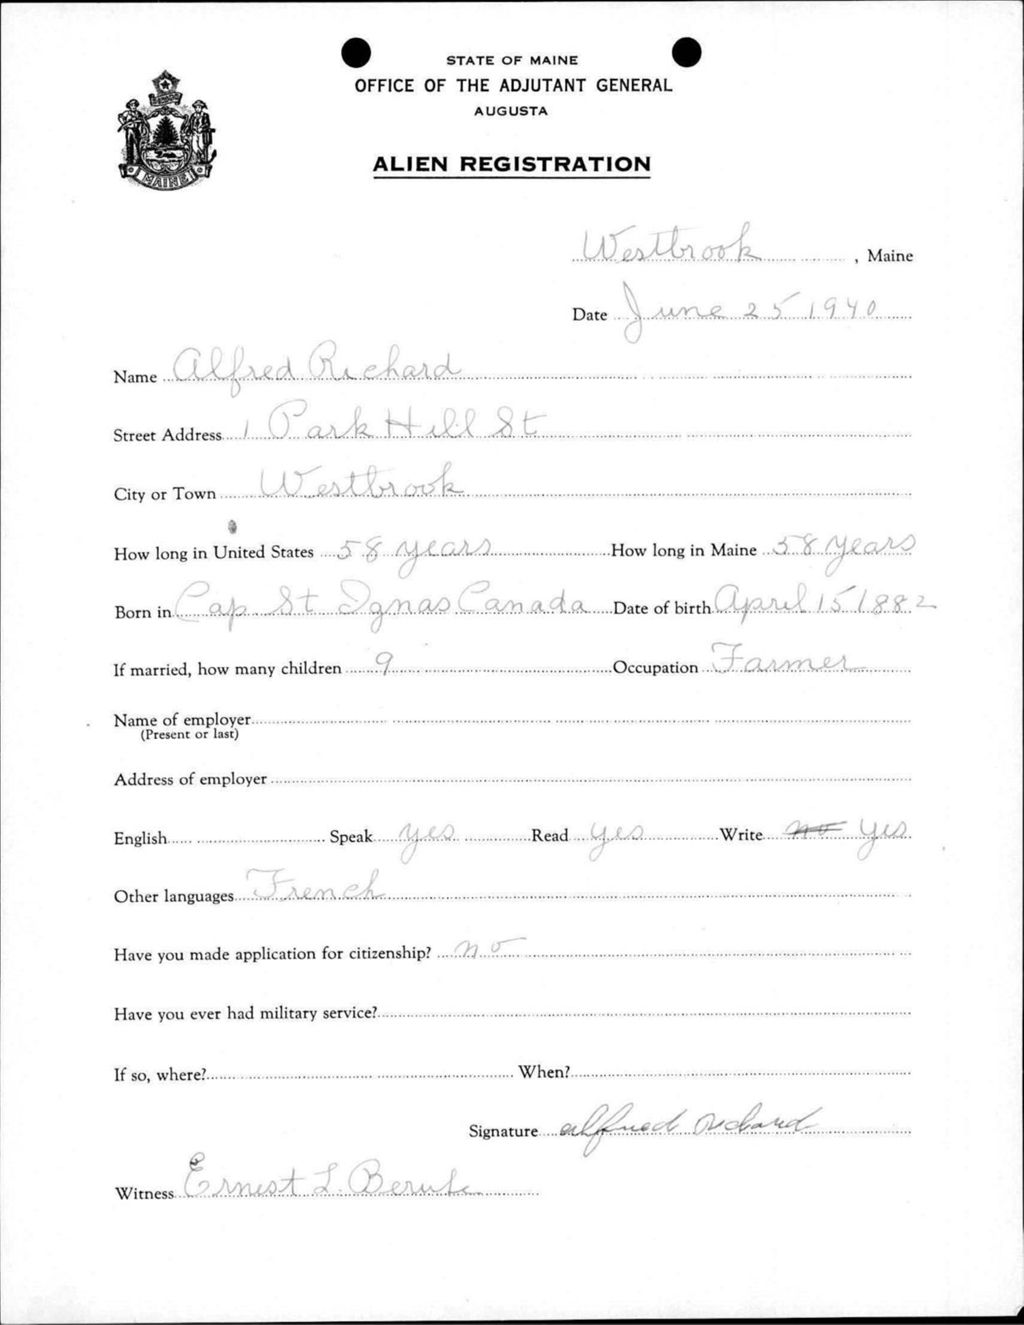 STATE OF MAINE
OFFICE OF THE ADJUTANT GENERAL
AUGUSTA
ALIEN REGISTRATION
MAINE
Westbrook, Maine
Date June 25 1940
Name Alfred Richard
Street Address 1 Park Hill St
City or Town Westbrook
How long in United States 58 years How long in Maine 58 years
Born in Cap St Ignas Canada Date of birth April 15 1882
If married, how many children 9 Occupation Farmer
Name of employer
(Present or last)
Address of employer
English Speak yes Read yes Write no yes
Other languages French
Have you made application for citizenship? no
Have you ever had military service?
If so, where? When?
Signature alfred Richard
Witness Ernest L. Berube